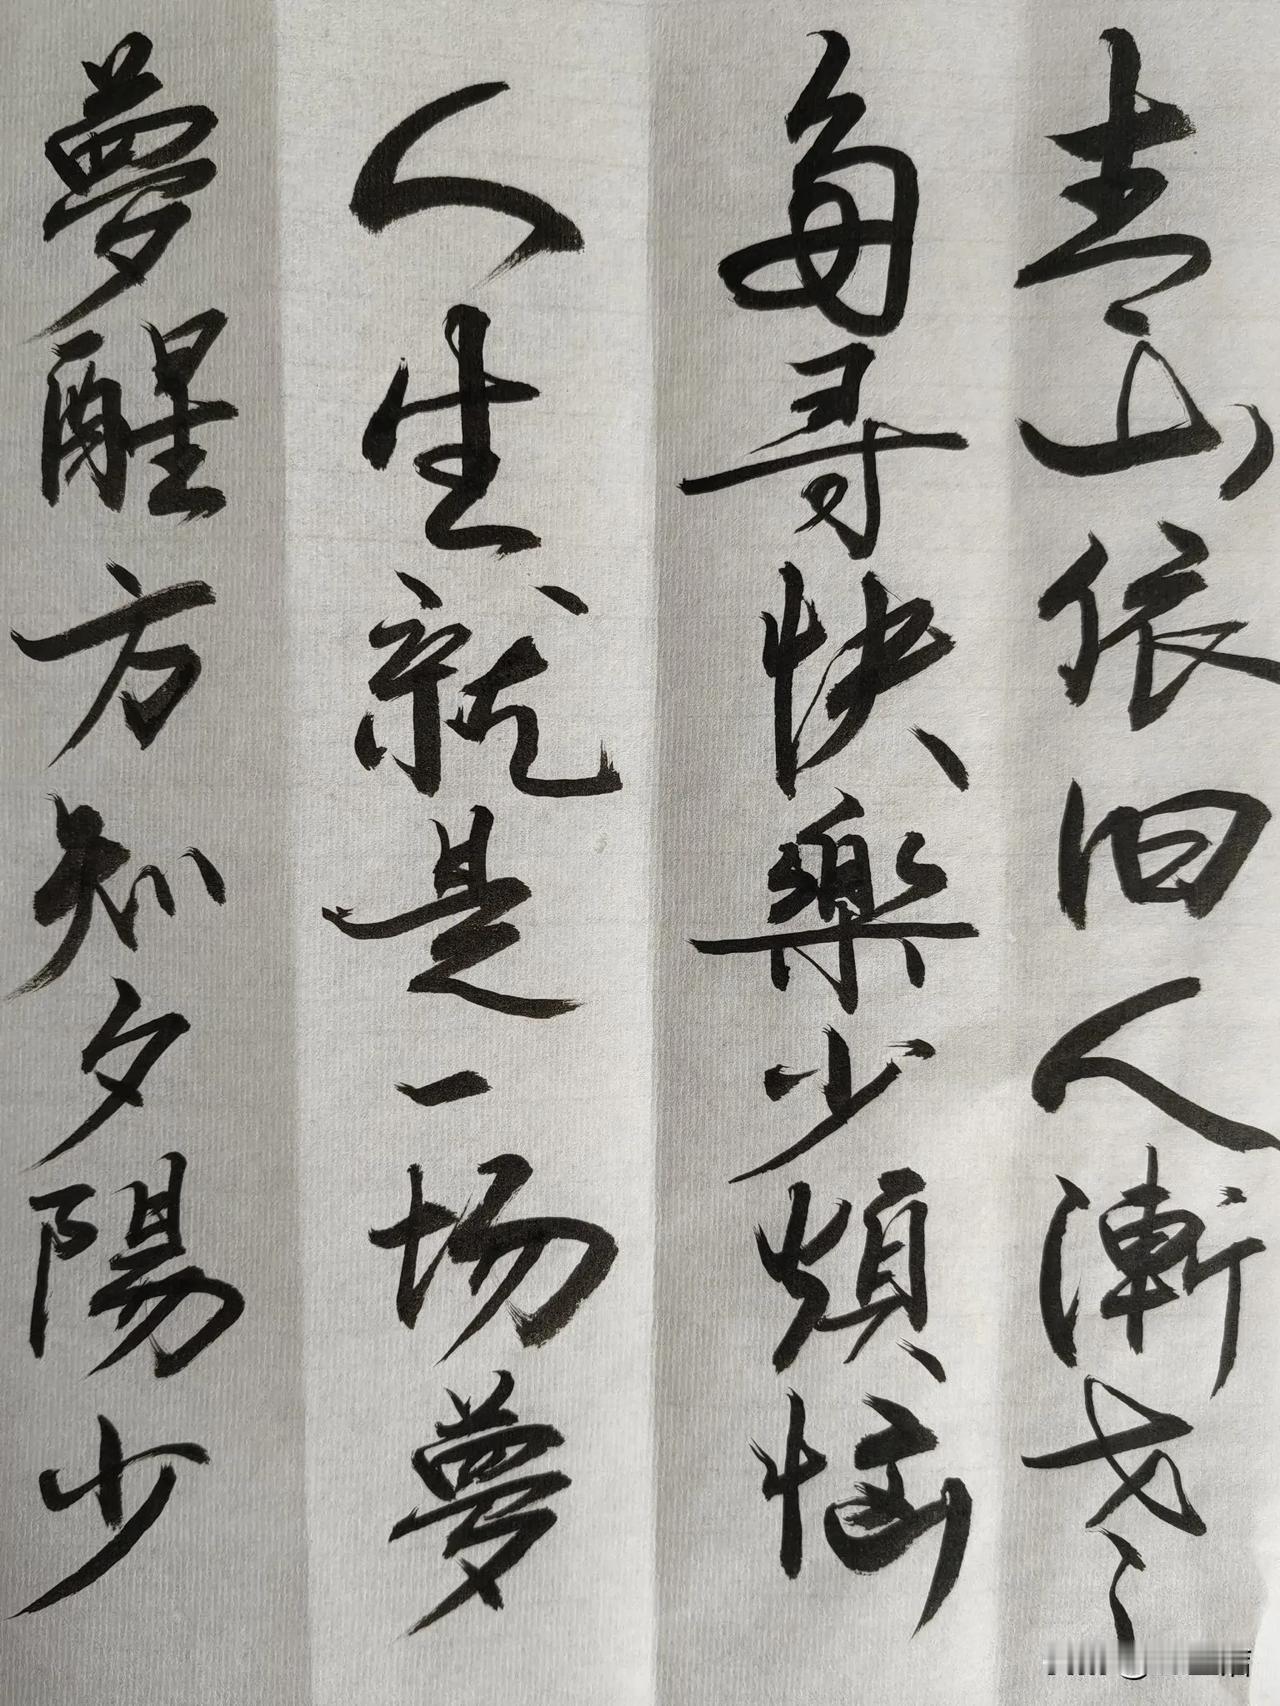 青山依旧人漸老
每寻快樂少煩恼
人生就是一场夢
夢醒方知夕陽少